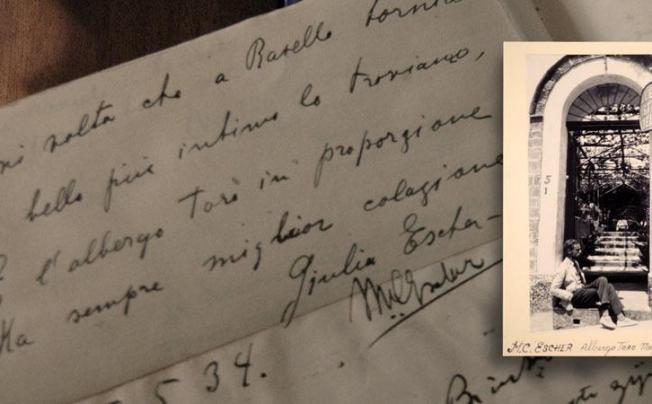 volta che a Ravello
bello più intimo lo troviamo,
l'albergo Toro in proporzione
Ha sempre miglior colazione
Giulia Escher-
MCEscher
5 34.
5
1
M.C. ESCHER Albergo Toro